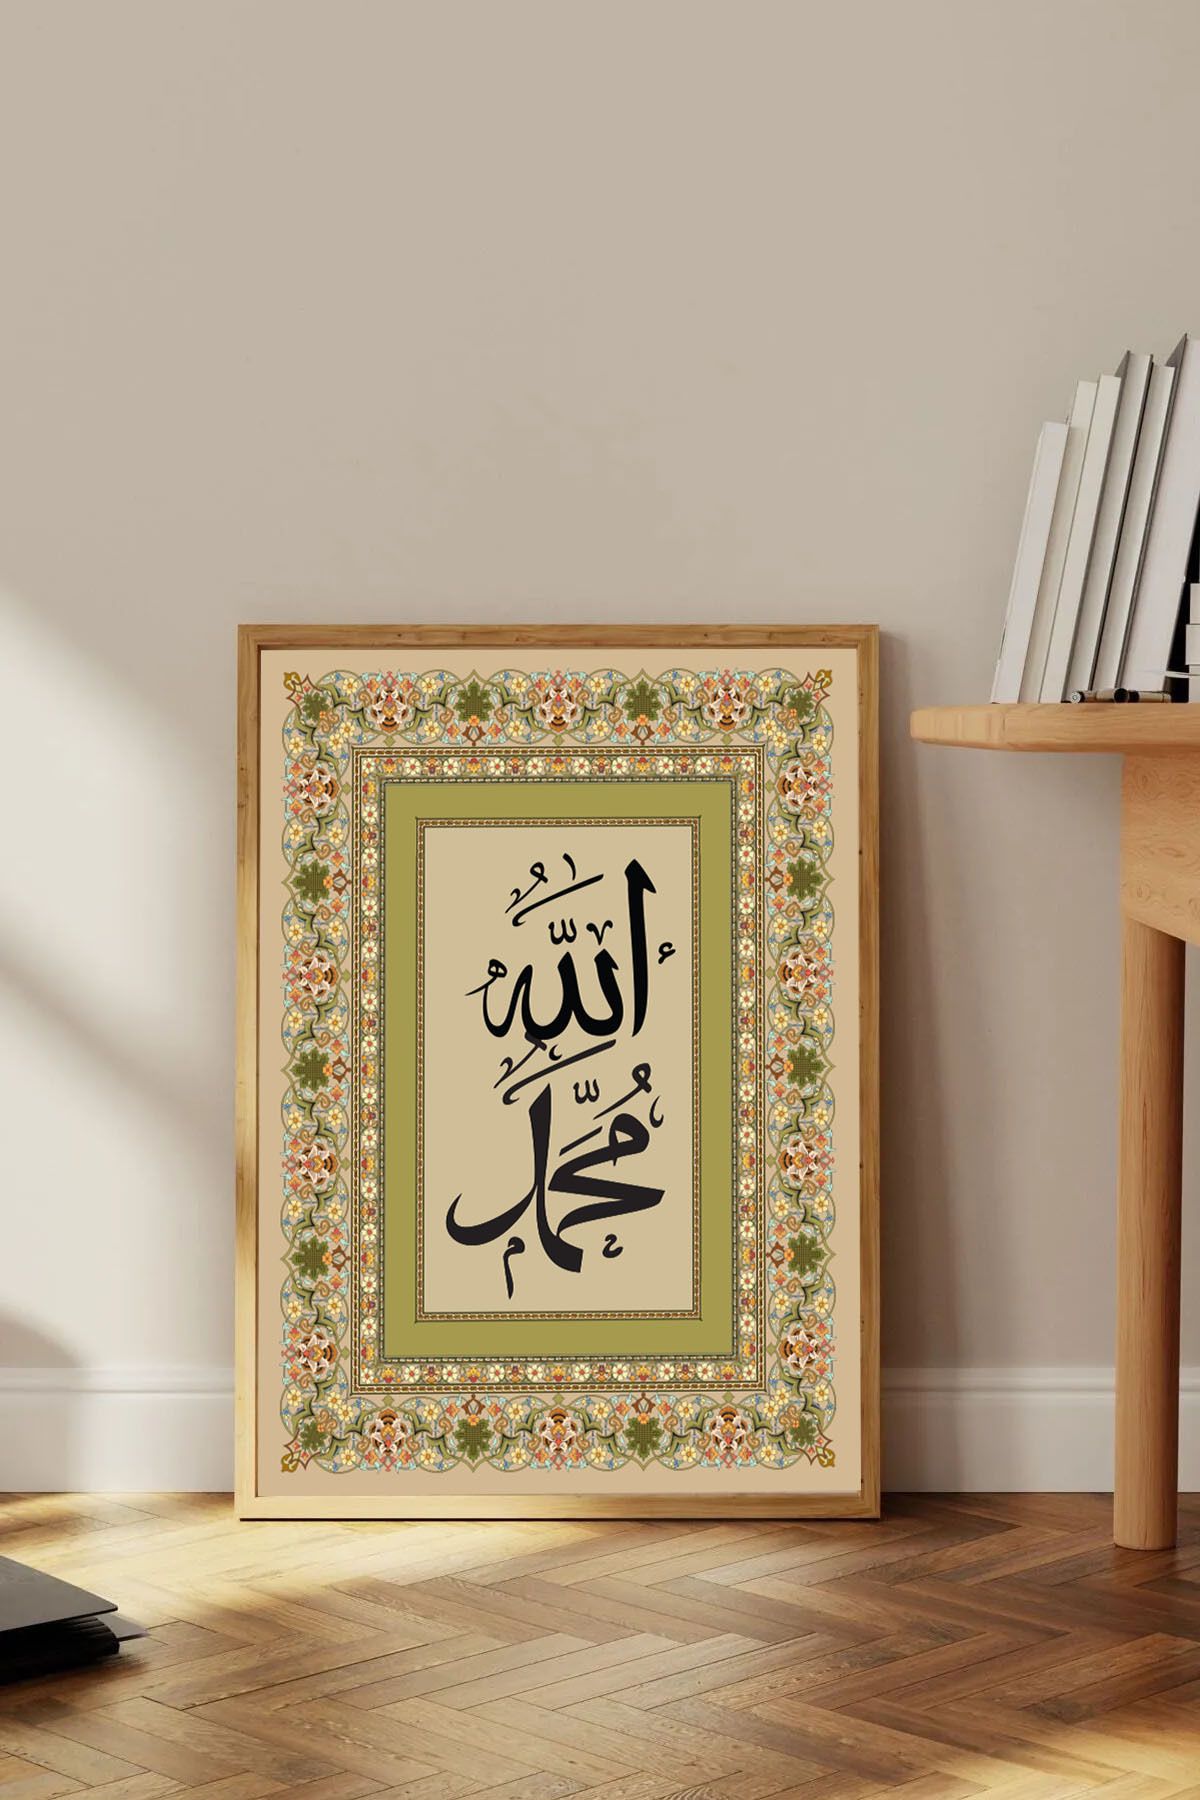 أللّٰهُ
مُحَمَّدٌ